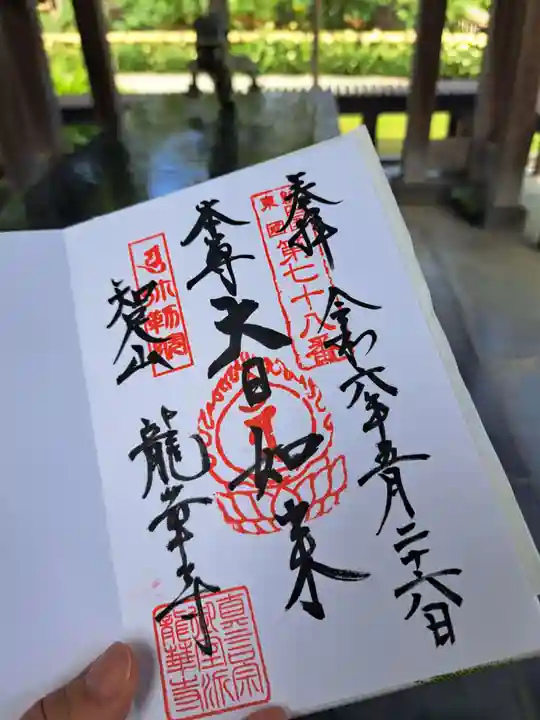 奉拝
令和六年五月二十六日
東国
第七十八番
本尊
大日如来
智足山
龍華寺
真言宗
御室派
龍華寺